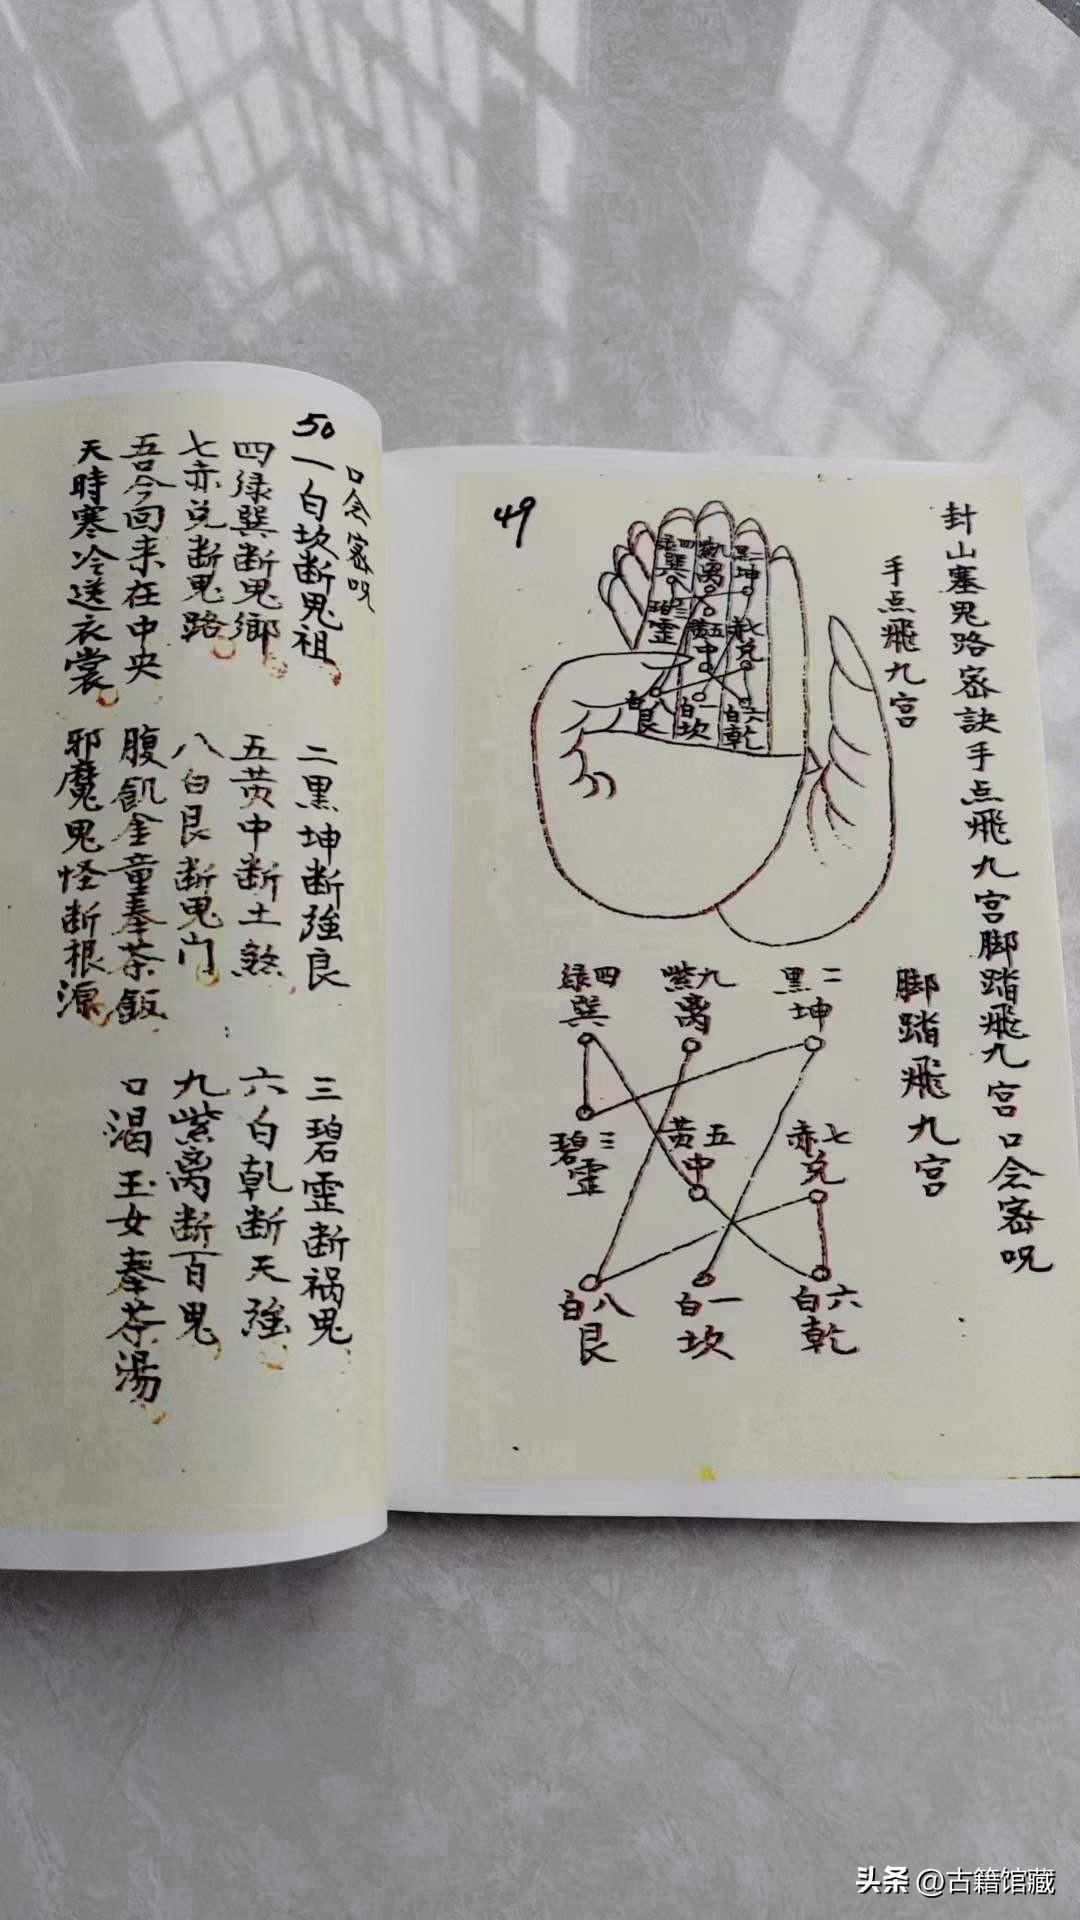 49
封山塞鬼路密訣手点飛九宮脚踏飛九宮口念密咒
手点飛九宮
四绿巽
九紫离
二黑坤
三碧
五黄中
七赤兑
八白艮
一白坎
六白乾
脚踏飛九宮
四绿巽
九紫离
二黑坤
三碧霊
五黄中
七赤兑
八白艮
一白坎
六白乾
50
口念密咒
一白坎断鬼祖
二黑坤断強良
三碧霊断祸鬼
四绿巽断鬼鄉
五黄中断土煞
六白乾断天強
七赤兑断鬼路
八白艮断鬼门
九紫离断百鬼
吾今回来在中央
腹飢金童奉茶飯
口渴玉女奉茶湯
天時寒冷送衣裳
邪魔鬼怪断根源
头条 @古籍馆藏